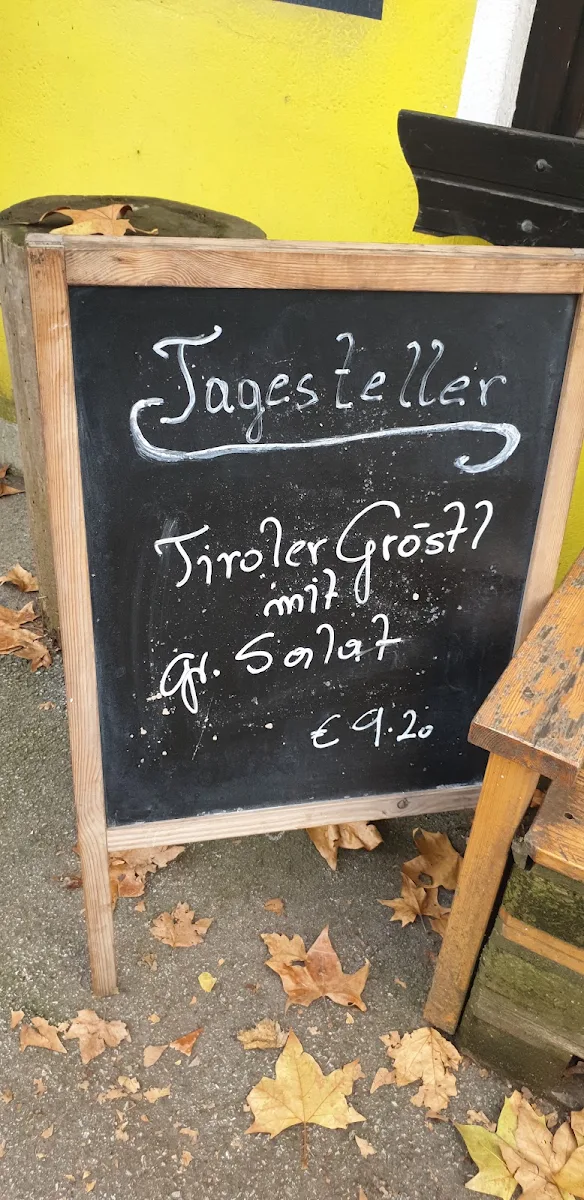 Tagesteller
Tiroler Gröstl
mit
gr. Salat
€ 9.20